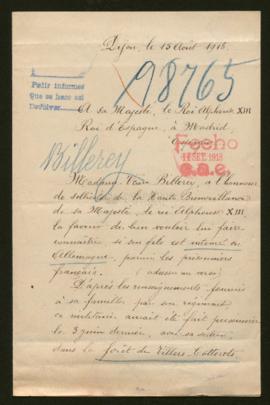 Dijon, le 15 Août 1918.
Pedir informes
que se hace así
98765
A sa Majesté, le Roi Alphonse XIII
Roi d'Espagne, à Madrid,
Fecho
SET. 1918
Billerey
Madame Veuve Billerey, a l'honneur
de solliciter de la Haute Bienveillance
de Sa Majesté, le roi Alphonse XIII
la faveur de bien vouloir lui faire
connaître si son fils est interné en
Allemagne, parmi les prisonniers
français. (adresse au verso)
D'après les renseignements fournis
à sa famille par son régiment
ce militaire aurait été fait prisonnier
le 3 juin dernier, avec sa section
dans la forêt de Villers-Cotterets